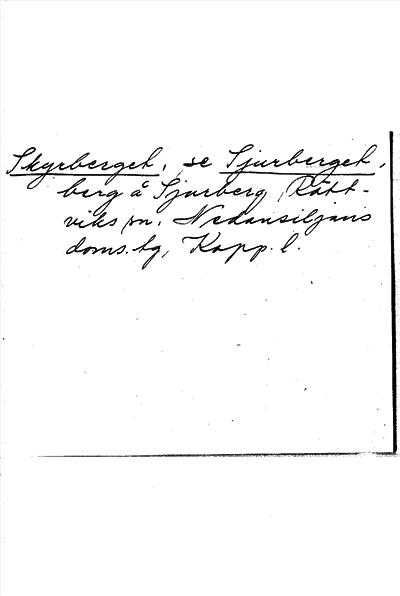 Skyrberget, se Sjurberget,
berg å Sjurberg, Rätt-
viks sn, Nedansiljans
doms. tg, Kopp. l.